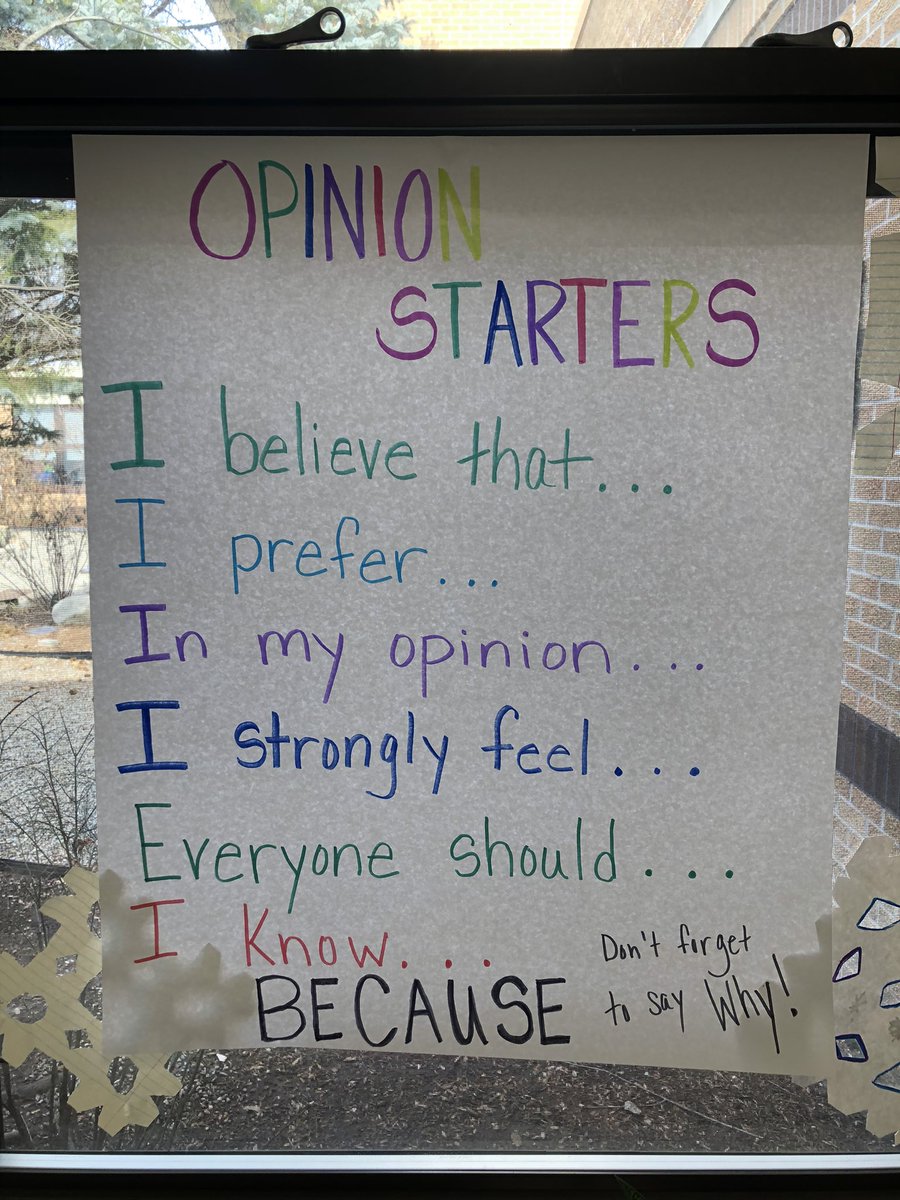 OPINION
STARTERS
I believe that...
I prefer...
In my opinion...
I strongly feel...
Everyone should...
I know...
BECAUSE
Don't forget
to say Why!